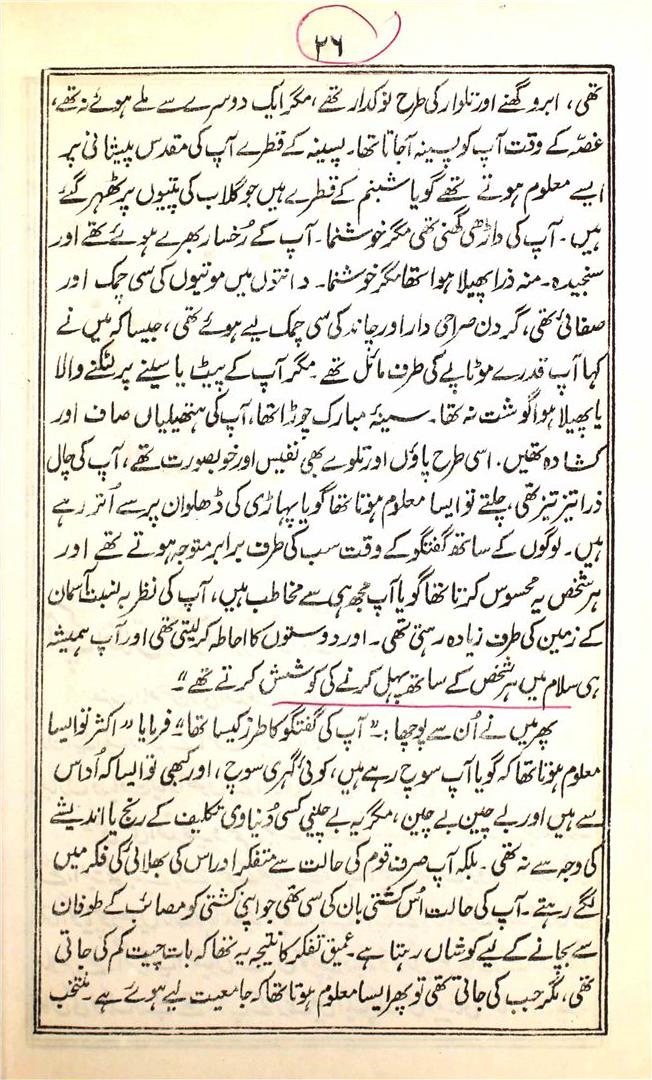 ۲۶
تھی، ابرو گھنے اور تلوار کی طرح نوکدار تھے، مگر ایک دوسرے سے ملے ہوئے نہ تھے،
غصّہ کے وقت آپ کو پسینہ آجاتا تھا۔ پسینہ کے قطرے آپ کی مقدس پیشانی پر
ایسے معلوم ہوتے تھے گویا شبنم کے قطرے ہیں جو گلاب کی پتیوں پر ٹھہر گئے
ہیں۔ آپ کی داڑھی گھنی تھی مگر خوشنما۔ آپ کے رُخسار بھرے ہوئے تھے اور
سنجیدہ۔ منہ ذرا پھیلا ہوا تھا مگر خوشنما۔ دانتوں میں موتیوں کی سی چمک اور
صفائی تھی، گردن صراحی دار اور چاند کی سی چمک لیے ہوئے تھی، جیسا کہ میں نے
کہا آپ قدرے موٹاپے کی طرف مائل تھے۔ مگر آپ کے پیٹ یا سینے پر لٹکنے والا
یا پھیلا ہوا گوشت نہ تھا۔ سینۂ مبارک چوڑا تھا، آپ کی ہتھیلیاں صاف اور
کشادہ تھیں۔ اسی طرح پاؤں اور تلوے بھی نفیس اور خوبصورت تھے، آپ کی چال
ذرا تیز تیز تھی، چلتے تو ایسا معلوم ہوتا تھا گویا پہاڑی کی ڈھلوان پر سے اُتر رہے
ہیں۔ لوگوں کے ساتھ گفتگو کے وقت سب کی طرف برابر متوجہ ہوتے تھے اور
ہر شخص یہ محسوس کرتا تھا گویا آپ مجھ ہی سے مخاطب ہیں، آپ کی نظر بہ نسبت آسمان
کے زمین کی طرف زیادہ رہتی تھی۔ اور دوستوں کا احاطہ کرلیتی تھی اور آپ ہمیشہ
ہی سلام میں ہر شخص کے ساتھ پہل کرنے کی کوشش کرتے تھے"۔
پھر میں نے اُن سے پوچھا:۔ "آپ کی گفتگو کا طرز کیسا تھا"۔ فرمایا "اکثر تو ایسا
معلوم ہوتا تھا کہ گویا آپ سوچ رہے ہیں، کوئی گہری سوچ، اور کبھی تو ایسا کہ اُداس
سے ہیں اور بے چین بے چین، مگر یہ بے چینی کسی دُنیاوی تکلیف کے رنج یا اندیشے
کی وجہ سے نہ تھی۔ بلکہ آپ صرف قوم کی حالت سے متفکر اور اس کی بھلائی کی فکر میں
لگے رہتے۔ آپ کی حالت اُس کشتی بان کی سی تھی جو اپنی کشتی کو مصائب کے طوفان
سے بچانے کے لیے کوشاں رہتا ہے۔ عمیق تفکر کا نتیجہ یہ تھا کہ بات چیت کم کی جاتی
تھی، مگر جب کی جاتی تھی تو پھر ایسا معلوم ہوتا تھا کہ جامعیت لیے ہوئے ہے۔ منتخب